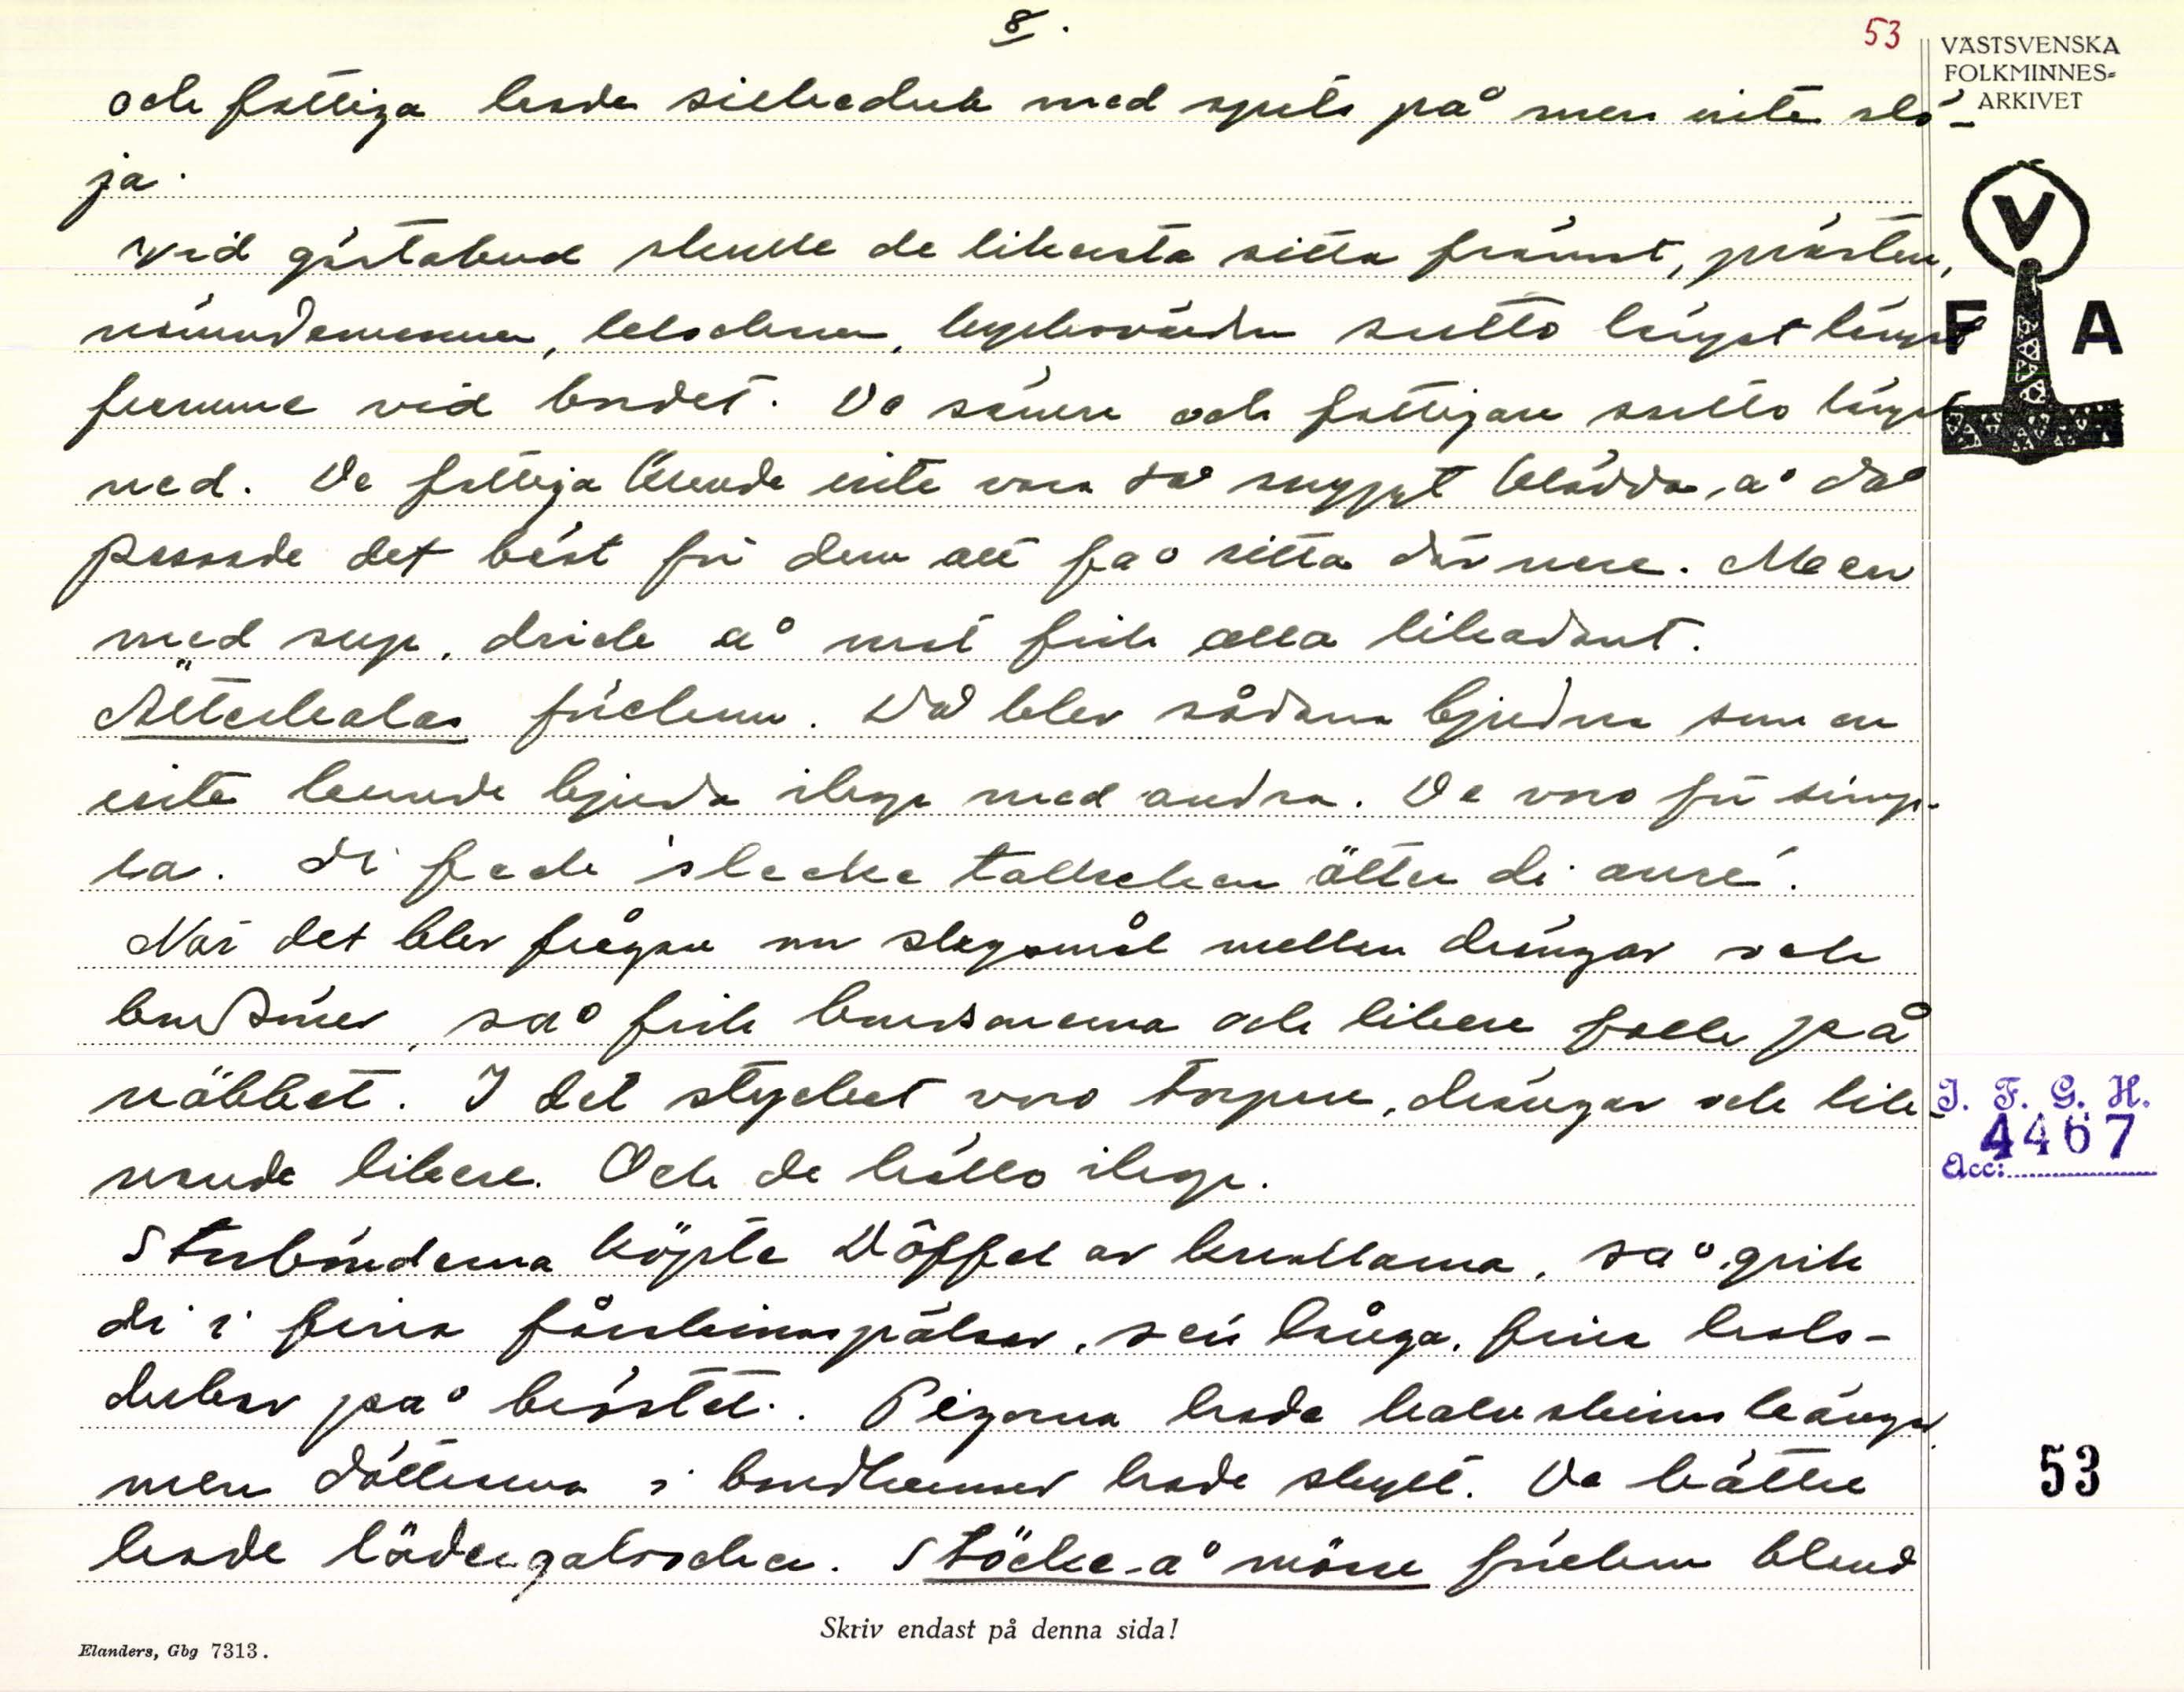 8.
53
VÄSTSVENSKA
FOLKMINNES-
ARKIVET
och fattiga hade silkeduk med spets på men inte slö-
ja.
Vid gästabud skulle de rikaste sitta främst, prästen,
nämndemannen, klockaren, kyrkovärden sutto längst längst
framme vid bordet. De sämre och fattigare sutto längst
ned. De fattiga kunde inte vara så snyggt klädda, å då
passade det bäst för dem att få sitta där nere. Maen
med sup, drick å mat fick alla likadant.
Ätterkalas förekom. Då blev sådana bjudna som en
inte kunde bjuda ihop med andra. De voro för simp-
la. Di feck slecke tallreken ätter di anre.
När det blev frågan om slagsmål mellan drängar och
bondsöner, så fick bondsönerna och rikare folk på
näbbet. I det stycket voro torpare, drängar och lik-
nande rikare. Och de höllo ihop.
Storbönderna köpte Döffel av knallarna, så gick
di i fina fårskinnspälsar, sen långa, fina hals-
dukar på bröstet. Pigorna hade halvskinnskängor
men döttrarna i bondhemmen hade skytt. De bättre
hade lädergaloscher. Stöcke-å mösse förekom bland
V
F A
I. F. G. H.
4467
Acc:
53
Skriv endast på denna sida!
Elanders, Gbg 7313.